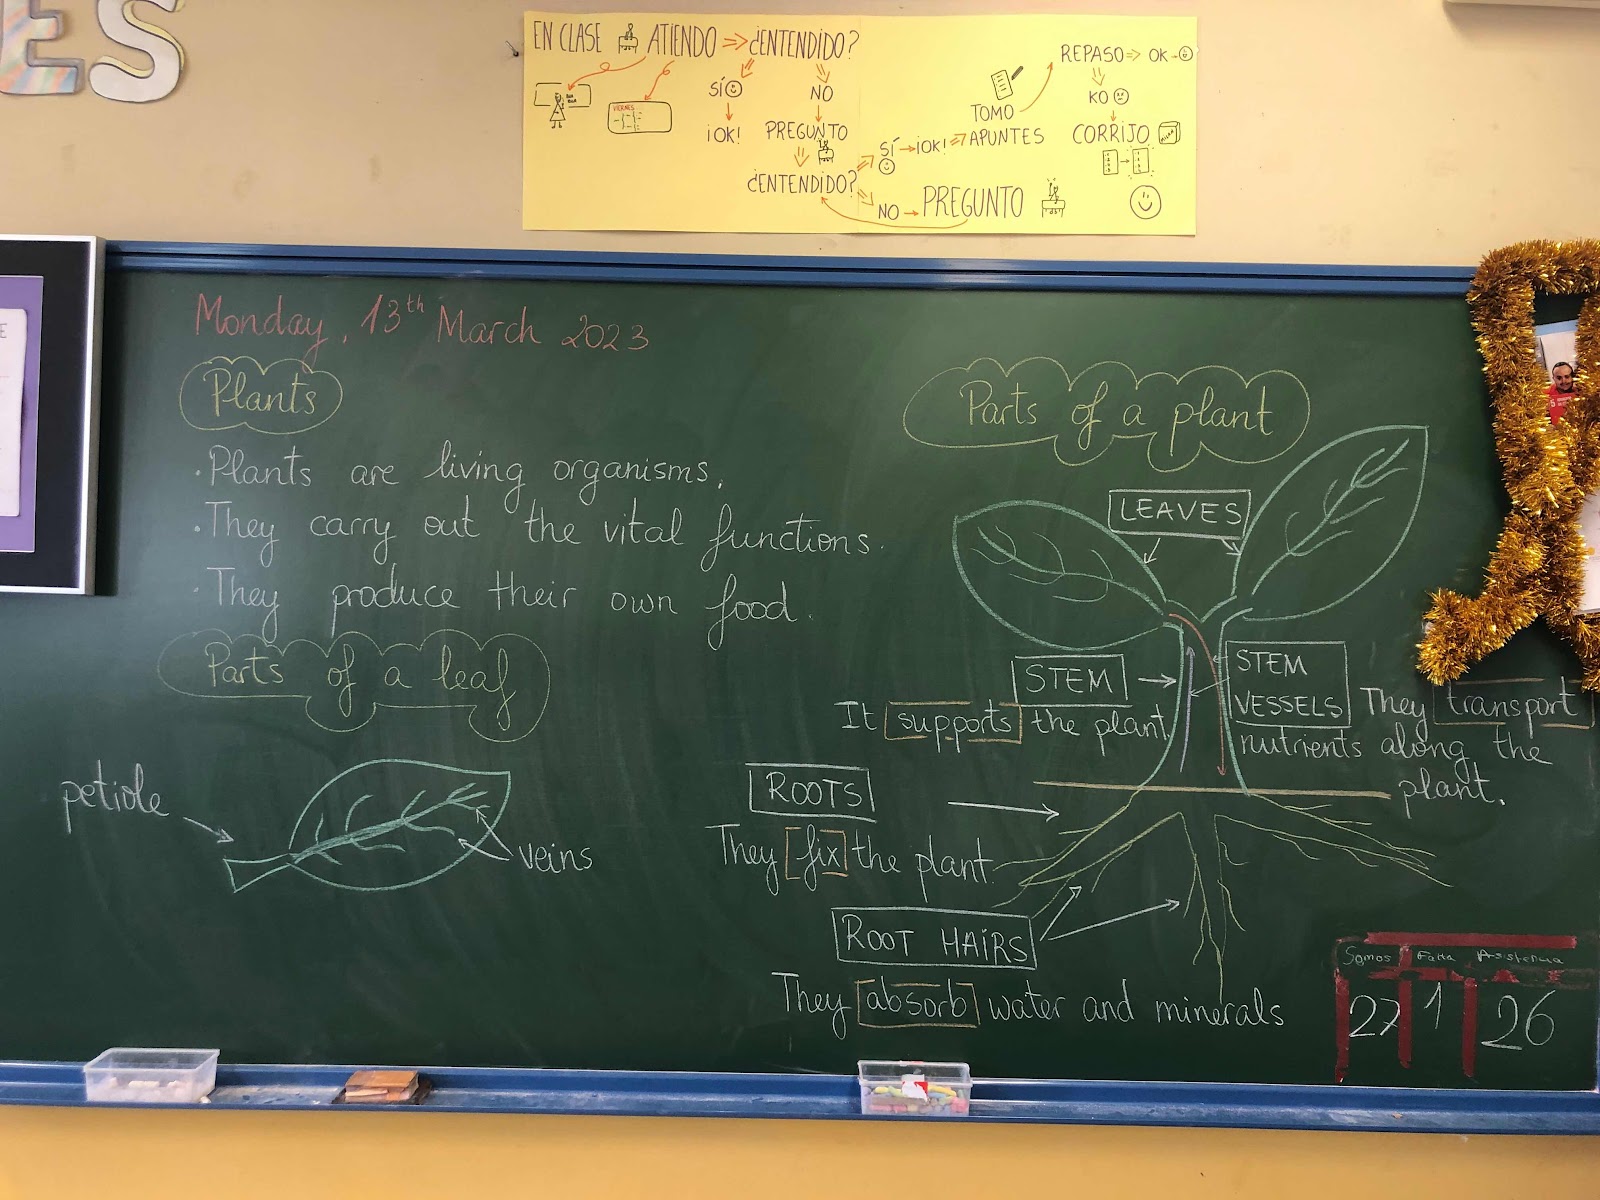 ES
EN CLASE ATIENDO ⇒ ¿ENTENDIDO?
SÍ
¡OK!
NO
PREGUNTO
¿ENTENDIDO?
SÍ → ¡OK! ⇒ TOMO APUNTES
NO → PREGUNTO
REPASO ⇒ OK
KO
CORRIJO
VIERNES
Monday, 13th March 2023
Plants
· Plants are living organisms.
· They carry out the vital functions.
· They produce their own food.
Parts of a leaf
petiole
veins
Parts of a plant
LEAVES
STEM
It supports the plant.
STEM
VESSELS They transport
nutrients along the
plant.
ROOTS
They fix the plant.
ROOT HAIRS
They absorb water and minerals
Somos Falta Asistencia
27 1 26